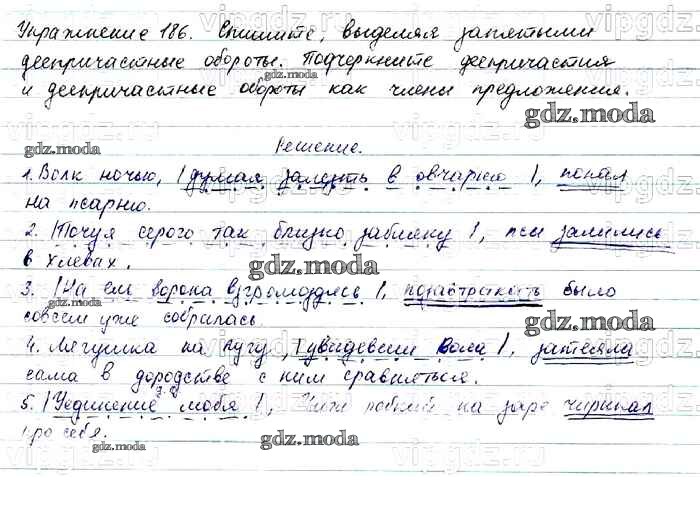 Упражнение 186. Спишите, выделяя запятыми
деепричастные обороты. Подчеркните деепричастия
и деепричастные обороты как члены предложения.
Решение.
1. Волк ночью, |думая залезть в овчарню|, попал
на псарню.
2. |Почуя серого так близко забияку|, псы залились
в хлевах.
3. |На ель ворона взгромоздясь|, позавтракать было
совсем уже собралась.
4. Лягушка на лугу, |увидевши вола|, затеяла
сама в дородстве с ним сравняться.
5. |Уединение любя|, Чиж робкий на заре чирикал
про себя.
gdz.moda
gdz.moda
gdz.moda
gdz.moda
gdz.moda
gdz.moda
gdz.moda
gdz.moda
vipgdz.com